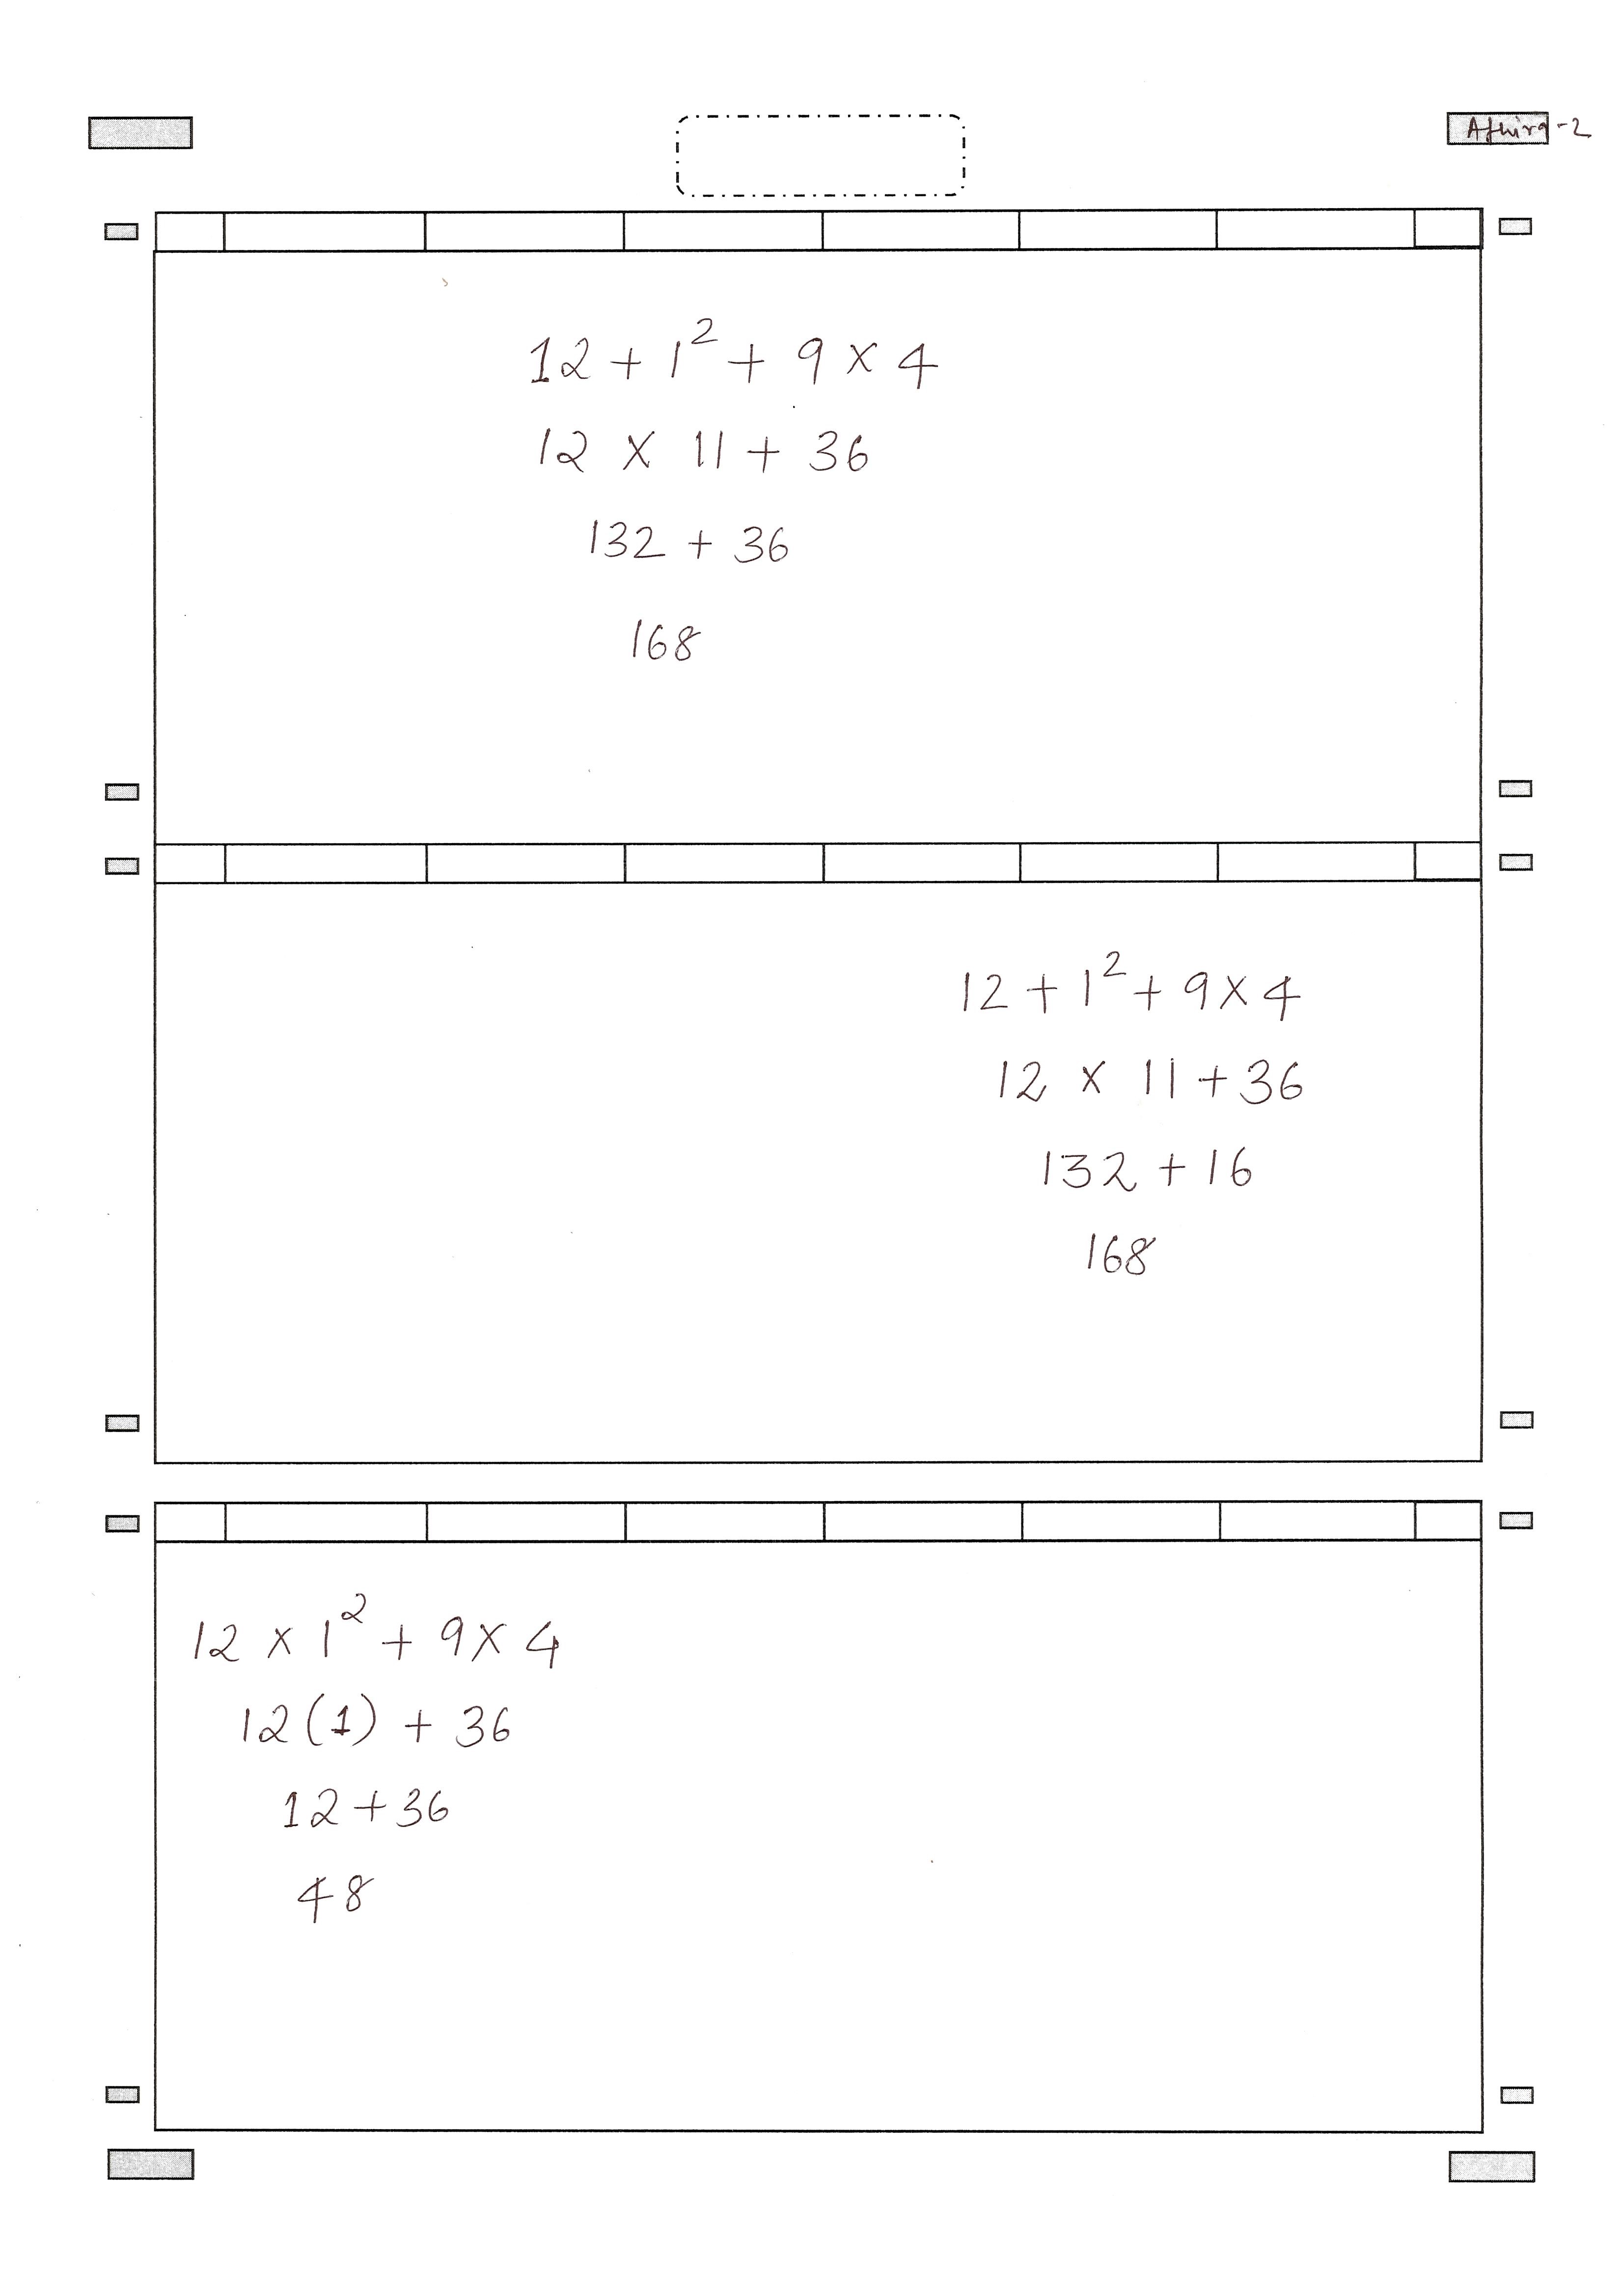 Afhira-2
12 + 1² + 9 × 4
12 × 11 + 36
132 + 36
168
12 + 1² + 9 × 4
12 × 11 + 36
132 + 16
168
12 × 1² + 9 × 4
12 (1) + 36
12 + 36
48